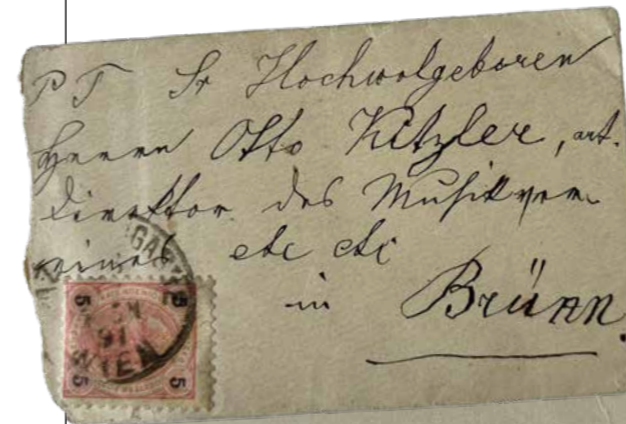 PT Sr Hochwolgeboren
Herrn Otto Kitzler, art.
Direktor des Musikver-
eines etc etc
in Brünn.
GA
5 5
91
WIEN
5 5